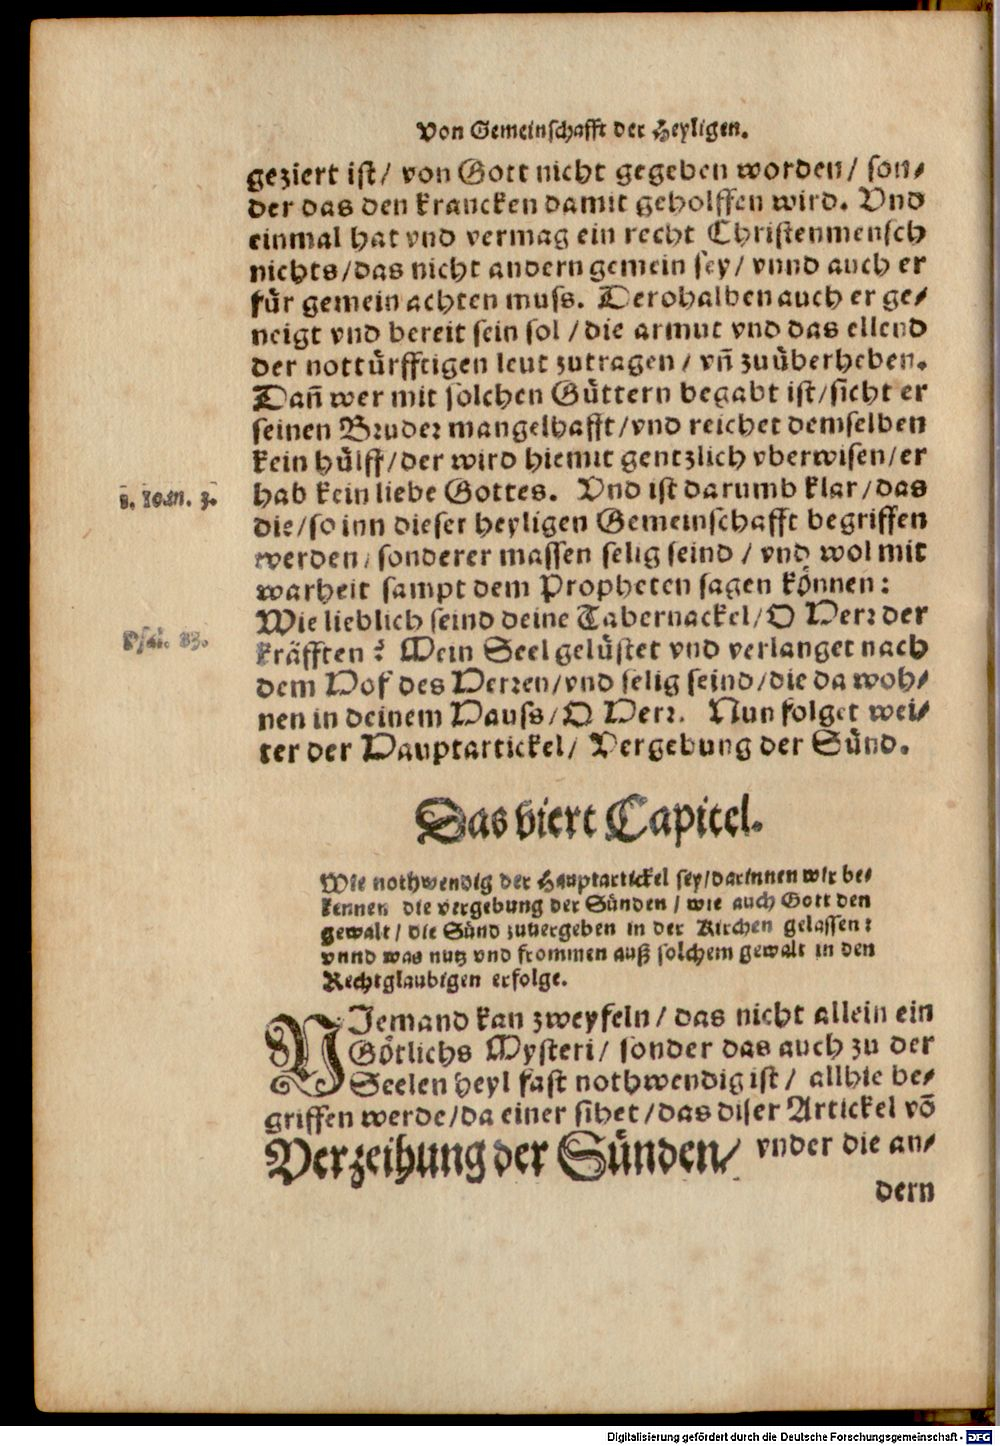 Von Gemeinschafft der Heyligen.
geziert ist/ von Gott nicht gegeben worden/ son-
der das den krancken damit geholffen wird. Vnd
einmal hat vnd vermag ein recht Christenmensch
nichts/das nicht andern gemein sey/ vnnd auch er
für gemein achten muss. Derohalben auch er ge-
neigt vnd bereit sein sol /die armut vnd das ellend
der nottürfftigen leut zutragen/ vñ zuüberheben.
Dañ wer mit solchen Güttern begabt ist/sicht er
seinen Bruder mangelhafft/vnd reichet demselben
kein hülff/der wird hiemit gentzlich vberwisen/er
1. Ioan. 3.
hab kein liebe Gottes. Vnd ist darumb klar/das
die/so inn dieser heyligen Gemeinschafft begriffen
werden/sonderer massen selig seind / vnd wol mit
warheit sampt dem Propheten sagen können:
Wie lieblich seind deine Tabernackel/O Herr der
Psal. 83.
kräfften? Mein Seel gelüstet vnd verlanget nach
dem Hof des Herren/vnd selig seind/die da woh-
nen in deinem Hauss/O Herr. Nun folget wei-
ter der Hauptartickel/ Vergebung der Sünd.
Das viert Capitel.
Wie nothwendig der Hauptartickel sey/darinnen wir be-
kennen die vergebung der Sünden / wie auch Gott den
gewalt/ die Sünd zuuergeben in der Kirchen gelassen:
vnnd was nutz vnd frommen auß solchem gewalt in den
Rechtglaubigen erfolge.
NIemand kan zweyfeln/ das nicht allein ein
Götlichs Mysteri/ sonder das auch zu der
Seelen heyl fast nothwendig ist/ allhie be-
griffen werde/da einer sihet/das diser Artickel võ
Verzeihung der Sünden/ vnder die an-
dern
Digitalisierung gefördert durch die Deutsche Forschungsgemeinschaft - DFG